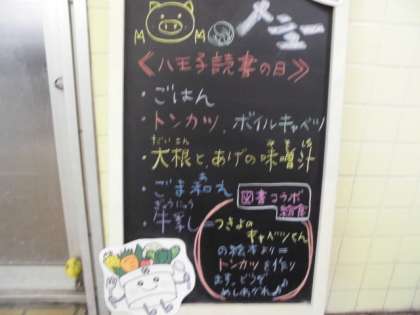 メニュー
《八王子読書の日》
・ごはん
・トンカツ、ボイルキャベツ
だいこん
みそしる
・大根と、あげの味噌汁
あ
・ごま和え
ぎゅうにゅう
・牛乳
図書コラボ
給食
つきよの
キャベツくん
の絵本より=
トンカツを作り
ます。どうぞ
めしあがれ♪